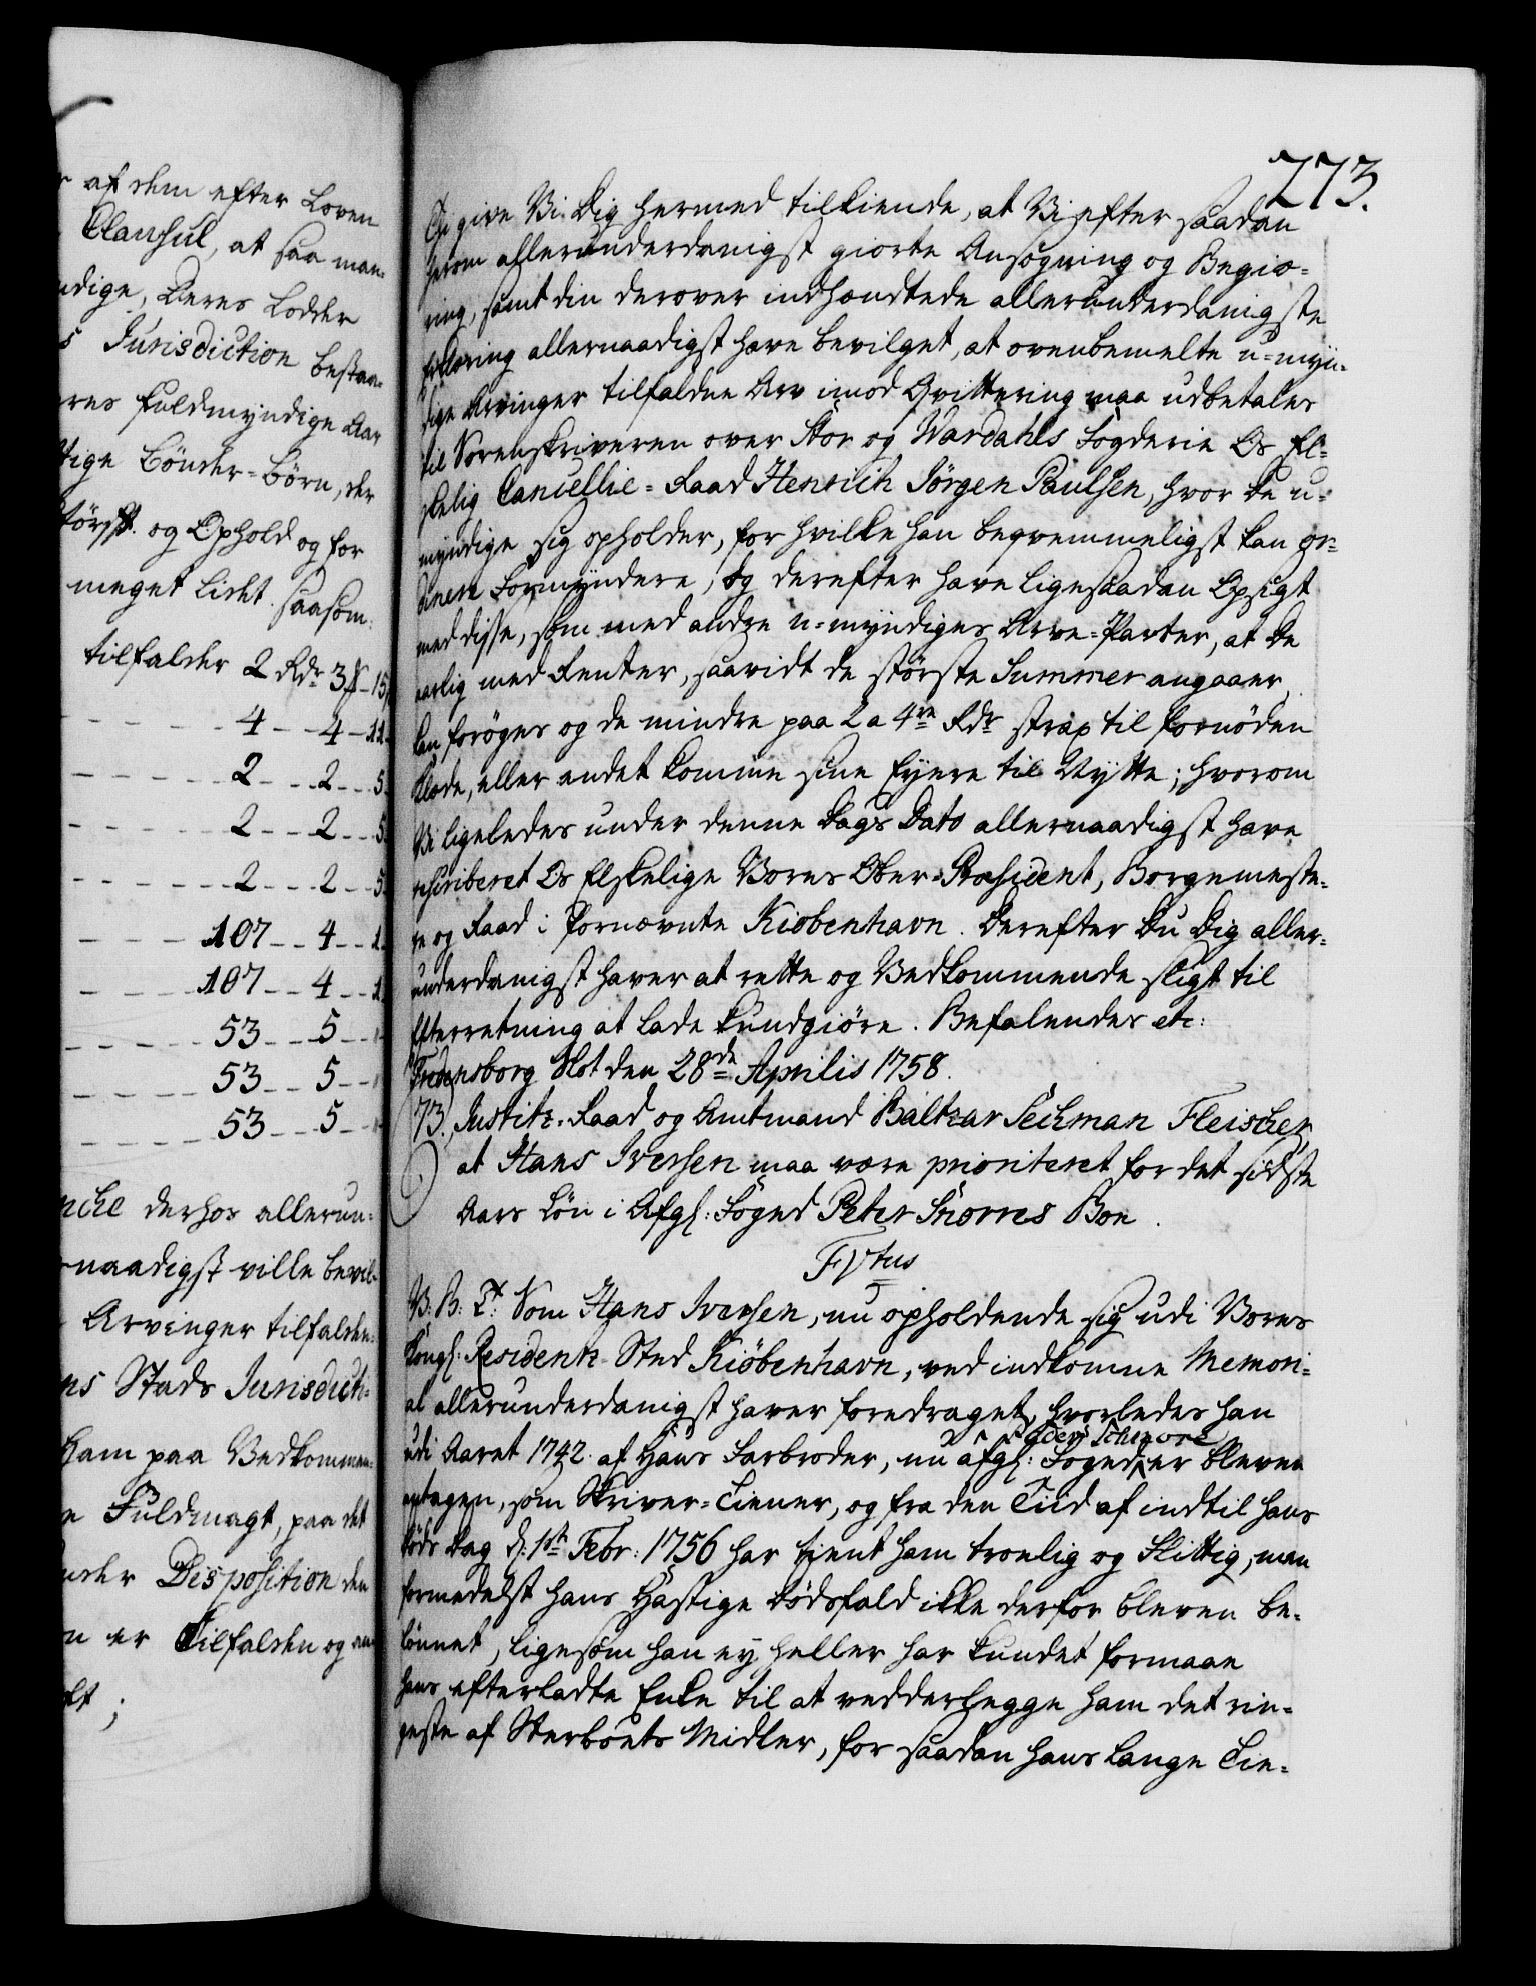 af dem efter Loven
Clausul, at saa man-
dige, deres Lodder
s Jurisdiction bestaa-
res fuldmyndige Aar
tige Bönder-Börn, der
törst. og Ophold og for
meget lidet. saasom:
tilfalder 2 Rdr 3 ß - 15
4 - - 4 - 11
2 - - 2 - - 5
2 - - 2 - - 5
2 - - 2 - - 5
107 - - 4 - - 1
107 - - 4 - - 1
53 - - 5 - -
53 - - 5 - -
53 - - 5 - -
derhos allerun-
naadigst ville bevil-
Arvinger tilfalden-
ns Stads Jurisdicti-
ham paa Vedkommen-
e Fuldmagt, paa det
under Disposition den
n er Tilfalden og
273.
Da give Vi Dig hermed tilkiende, at Vi efter saadan
herom allerunderdanigst giorte Ansögning og Begiæ-
ring, samt din derover indhændtede allerunderdanigste
Erklæring allernaadigst have bevilget, at ovenbemelte u-myn-
dige Arvinger tilfaldne Arv imod Qvittering maa udbetales
til Sorenskriveren over Stör og Wærdahls Fogderie Os El-
skelig Cancellie-Raad Henrich Jörgen Paulsen, hvor de u-
myndige sig opholder, for hvilke han beqvemmeligst kan or-
dinere Formyndere, og derefter have ligesaadan Opsigt
med disse, som med andre u-myndiges Arve-Parter, at de
aarlig med Renter, saavidt de störste Summer angaaer,
kan foröges og de mindre paa 2 a 4re Rdr strax til fornöden
Klæde, eller andet komme sine Eyere til Nytte; hvorom
Vi ligeledes under denne Dags Dato allernaadigst have
rescriberet Os Elskelige Vores Ober-Præsident, Borgemeste-
re og Raad i fornævnte Kiöbenhavn. Derefter Du Dig aller-
underdanigst haver at rette og Vedkommende sligt til
Efterretning at lade kundgiöre. Befalendes etc:
Fredensborg Slot den 28de Aprilis 1758.
73. Justitz-Raad og Amtmand Baltzar Sechman Fleischer,
at Hans Iversen maa være prioriteret for det sidste
Aars Lön i Afgl: Foged Peter Snorres Boe.
F Vtus
V: B: T: Som Hans Iversen, nu opholdende sig udi Vores
Kongl: Residentz-Sted Kiöbenhavn, ved indkomne Memori-
al allerunderdanigst haver foredraget, hvorledes han
udi Aaret 1742 af Hans Farbroder, nu afgl: Foged er bleven
antagen, som Skriver-Tiener, og fra den Tiid af indtil hans
Döds Dag d: 1ste Febr: 1756 har tient ham troelig og flittig, men
formedelst hans hastige Dödsfald ikke derfor bleven be-
lönnet, ligesom han ey heller har kundet formaae
hans efterladte Enke til at vedderlegge ham det rin-
geste af Sterboets Midler, for saadan hans lange Tie-